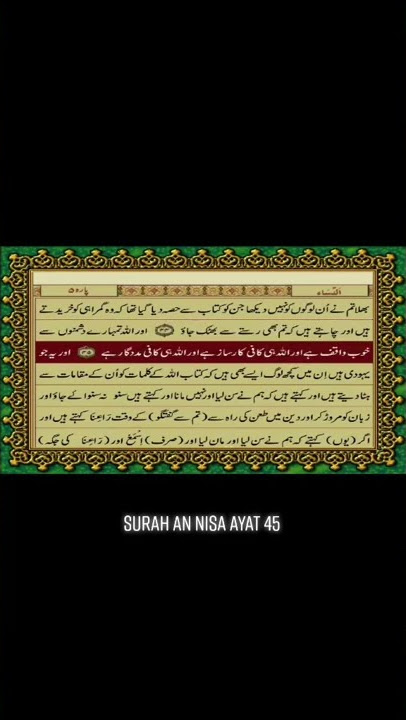 النسآء پارہ ۵
بھلا تم نے اُن لوگوں کو نہیں دیکھا جن کو کتاب سے حصہ دیا گیا تھا کہ وہ گمراہی کو خریدتے
ہیں اور چاہتے ہیں کہ تم بھی رستے سے بھٹک جاؤ ۴۴ اور اللہ تمہارے دشمنوں سے
خوب واقف ہے اور اللہ ہی کافی کارساز ہے اور اللہ ہی کافی مددگار ہے ۴۵ اور یہ جو
یہودی ہیں اِن میں کچھ لوگ ایسے بھی ہیں کہ کتاب اللہ کے کلمات کو اُن کے مقامات سے
ہٹا دیتے ہیں اور کہتے ہیں کہ ہم نے سن لیا اور نہیں مانا اور کہتے ہیں سنو نہ سنوائے جاؤ اور
زبان کو مروڑ کر اور دین میں طعن کی راہ سے (تم سے گفتگو) کے وقت رَاعِنَا کہتے ہیں اور
اگر (یوں) کہتے کہ ہم نے سن لیا اور مان لیا اور (صرف) اِسْمَعْ اور (رَاعِنَا کی جگہ)
SURAH AN NISA AYAT 45